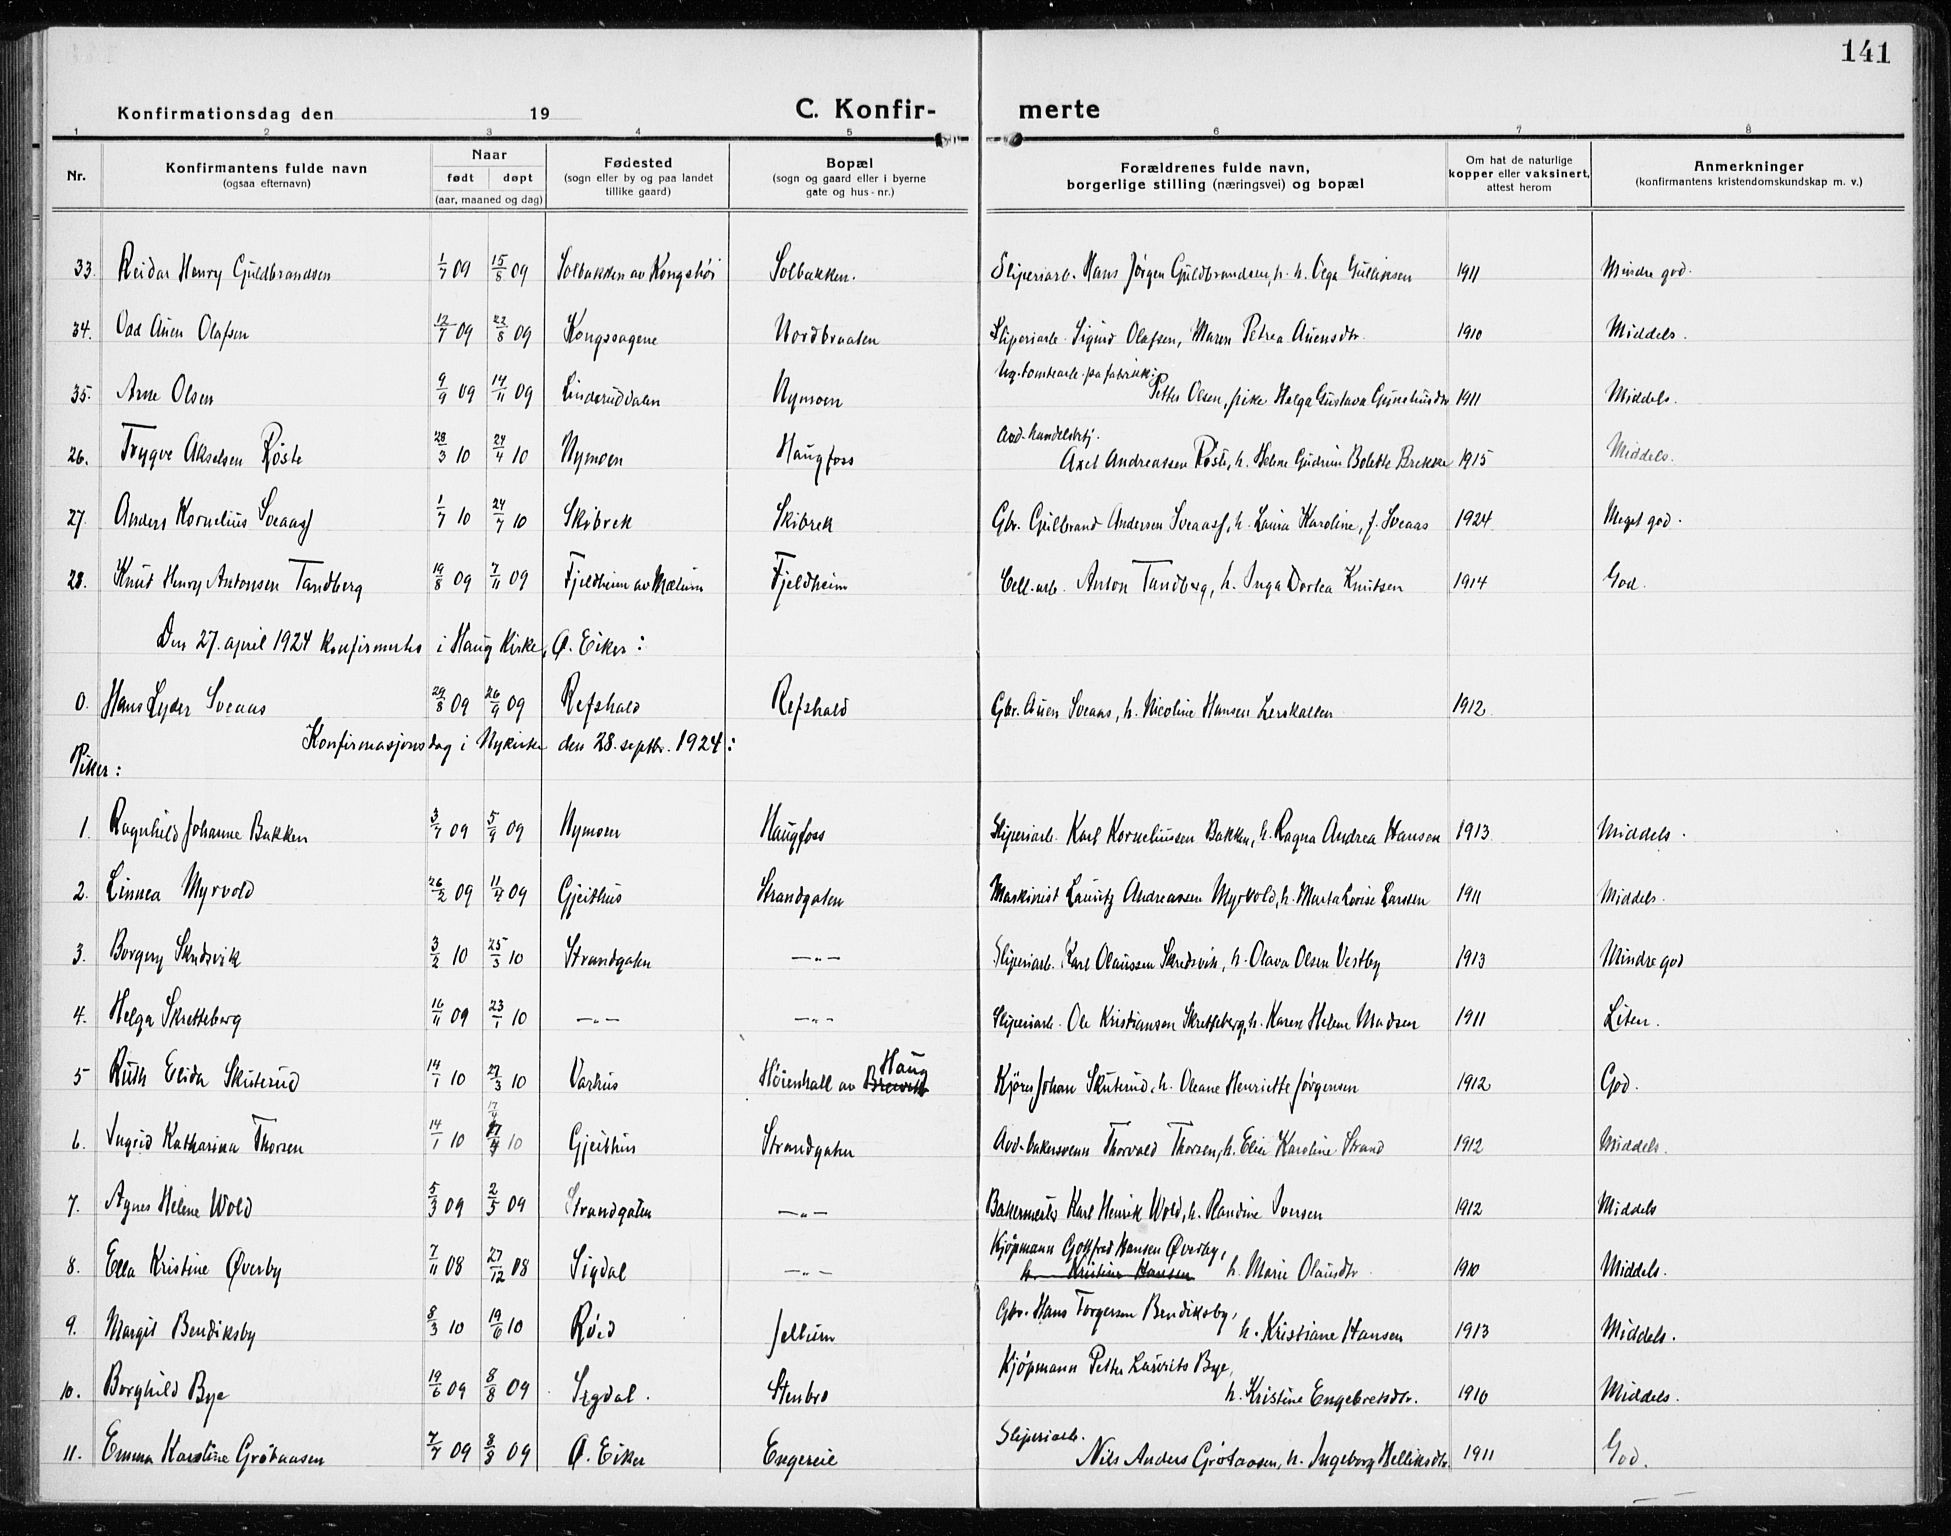 141
Konfirmationsdag den 19 C. Konfir- merte
1 2 3 4 5 6 7 8
Nr. Konfirmantens fulde navn (ogsaa efternavn) Naar født døpt (aar, maaned og dag) Fødested (sogn eller by og paa landet tillike gaard) Bopæl (sogn og gaard eller i byerne gate og hus-nr.) Forældrenes fulde navn, borgerlige stilling (næringsvei) og bopæl Om hat de naturlige kopper eller vaksinert, attest herom Anmerkninger (konfirmantens kristendomskundskap m. v.)
33. Reidar Henry Guldbrandsen 1/7 09 15/8 09 Solbakken av Kongshøi Solbakken. Sliperiarb. Hans Jørgen Guldbrandsen, h. Olga Gulliksen 1911 Mindre god.
34. Odd Auen Olafsen 12/7 09 22/8 09 Kongssagene Nordbraaten Sliperiarb. Sigurd Olafsen, Maren Petrea Auensdtr. 1910 Middels.
35. Arne Olsen 9/9 09 14/11 09 Linderuddalen Nymoen Ug. tomtearb. på fabrik: Petter Olsen, pike Helga Gustava 1911 Middels.
26. Trygve Akselsen Røste 28/3 10 24/4 10 Nymoen Haugfoss Avd. handelsbetj. Axel Andreassen Røste, h. Helene Gudrun Bolette Brekke 1915 Middels.
27. Anders Kornelius Sveaas 1/7 10 24/7 10 Skibrek Skibrek Gbr. Gulbrand Andersen Sveaas, h. Laura Karoline, f. Sveaas 1924 Meget god.
28. Knut Henry Antonsen Tandberg 19/8 09 7/11 09 Fjeldheim av Mælum Fjeldheim Cell.arb. Anton Tandberg, h. Inga Dortea Knutsen 1914 God.
Den 27. april 1924 konfirmertes i Haug Kirke, Ø. Eiker:
0. Hans Lyder Sveaas 29/8 09 26/9 09 Refshald Refshald Gbr. Auen Sveaas, h. Nicoline Hansen Lerskallen 1912
Konfirmasjonsdag i Nykirke den 28. septbr. 1924:
Piker:
1. Ragnhild Johanne Bakken 3/7 09 5/9 09 Nymoen Haugfoss Sliperiarb. Karl Korneliussen Bakken, h. Ragna Andrea Hansen 1913 Middels.
2. Linnea Myrvold 26/2 09 11/4 09 Gjeithus Strandgaten Maskinist Lauritz Andreassen Myrvold, h. Marta Lovise Larsen 1911 Middels.
3. Borgny Skredsvik 3/2 10 25/3 10 Strandgaten —„— Sliperiarb. Karl Olaussen Skredsvik, h. Olava Olsen Vestby 1913 Mindre god
4. Helga Skretteberg 16/11 09 23/1 10 —„— —„— Sliperiarb. Ole Kristiansen Skretteberg, h. Karen Helene Madsen 1911 Liten.
5 Ruth Elida Skuterud 14/1 10 27/3 10 Varhus Hørenhall av Haug Kjører Johan Skuterud, h. Oleane Henriette Jørgensen 1912 God.
6. Ingrid Katharina Thorsen 14/1 10 17/4 10 Gjeithus Strandgaten Avd. bakersvenn Thorvald Thorsen, h. Elise Karoline Strand 1912 Middels.
7. Agnes Helene Wold 5/3 09 2/5 09 Strandgaten —„— Bakermester Karl Henrik Wold, h. Randine Iversen 1912 Middels
8. Ella Kristine Øverby 7/11 08 27/12 08 Sigdal —„— Kjøpmann Gottfred Hansen Øverby, h. Kristine Hansen h. Marie Olausdtr. 1910 Middels.
9. Margit Bendiksby 8/3 10 19/6 10 Røed Jellum Gbr. Hans Torgersen Bendiksby, h. Kristiane Hansen 1913 Middels.
10. Borghild Bye 19/6 09 8/8 09 Sigdal. Stenbro Kjøpmann Petter Laurits Bye, h. Kristine Engebretsdtr. 1910 Middels.
11. Emma Karoline Grøtaasen 7/7 09 8/8 09 Ø. Eiker Engereie Sliperiarb. Nils Anders Grøtaasen, h. Ingeborg Helliksdtr. 1911 God.